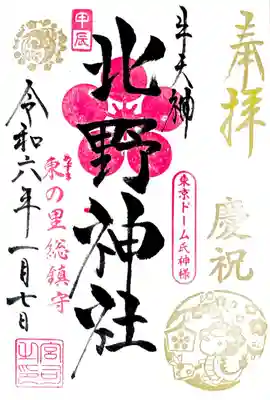 奉拝
慶祝
牛天神
東京ドーム氏神様
北野神社
甲辰
東の里総鎮守
令和六年一月七日